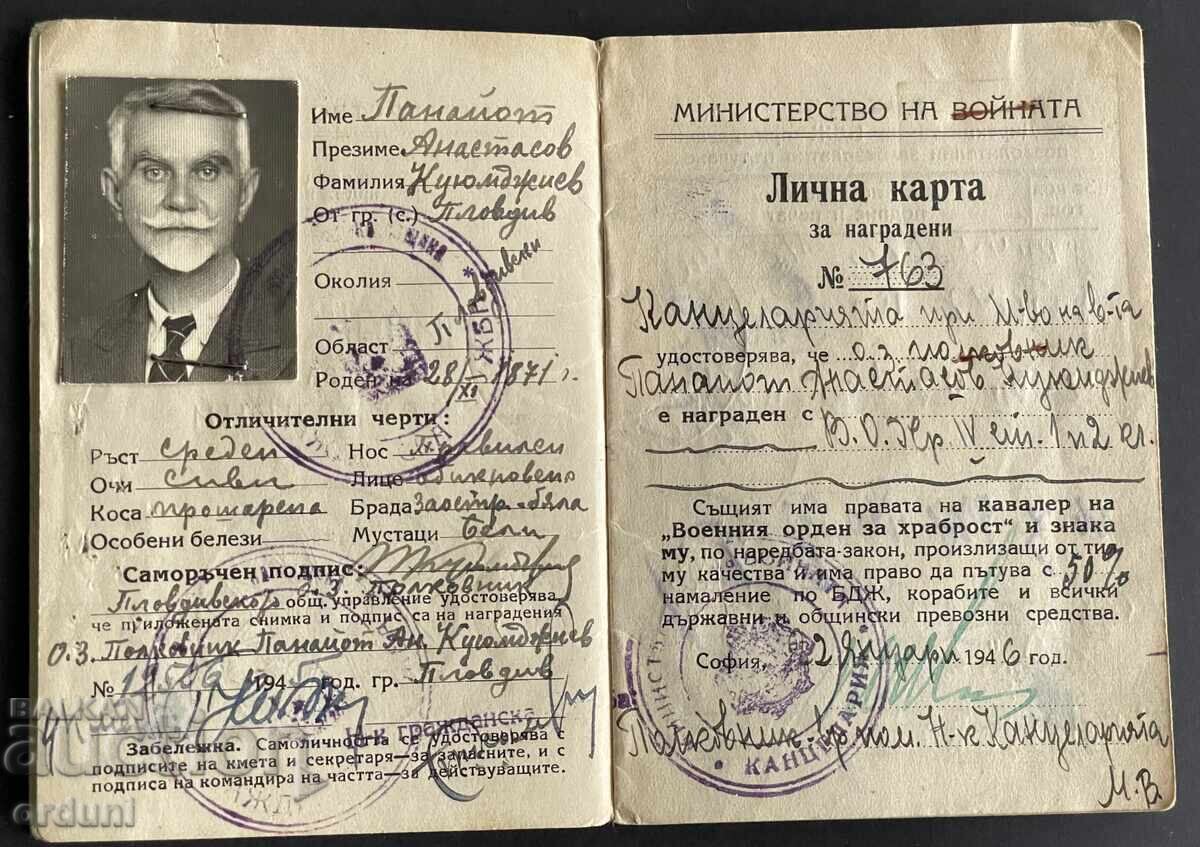 Име Панайот
Презиме Анастасов
Фамилия Куюмджиев
От гр. (с.) Пловдив
Околия
Област Пловдивски
Роден на 28/XI 1871 г.
Отличителни черти:
Ръст среден Нос правилен
Очи сиви Лице обикновено
Коса прошарена Брада Заостр. бяла
Особени белези Мустаци Бели
Саморъчен подпис:
О.З. Полковник
Пловдивско общ. управление удостоверява,
че приложената снимка и подпис са на наградения
О.З. Полковник Панайот Ан. Куюмджиев
№ 1945 год. гр. Пловдив
Н-к гражданска
Забележка. Самоличността се удостоверява с
подписите на кмета и секретаря—за запасните, и с
подписа на командира на частта—за действуващите.
МИНИСТЕРСТВО НА ВОЙНАТА
Лична карта
за наградени
№ 763
Канцеларията при М-во на в-та
удостоверява, че о.з. полковник
Панайот Анастасов Куюмджиев
е награден с В.О.Хр. IV ст. 1 и 2 кл.
Същият има правата на кавалер на
"Военния орден за храброст" и знака
му, по наредбата-закон, произлизащи от тия
му качества и има право да пътува с 50%
намаление по БДЖ, корабите и всички
държавни и общински превозни средства.
София, 2 Януари 1946 год.
Полковник, пом. Н-к Канцеларията
М.В.
КАНЦЕЛАРИЯ
BALKAN
auction
orduni